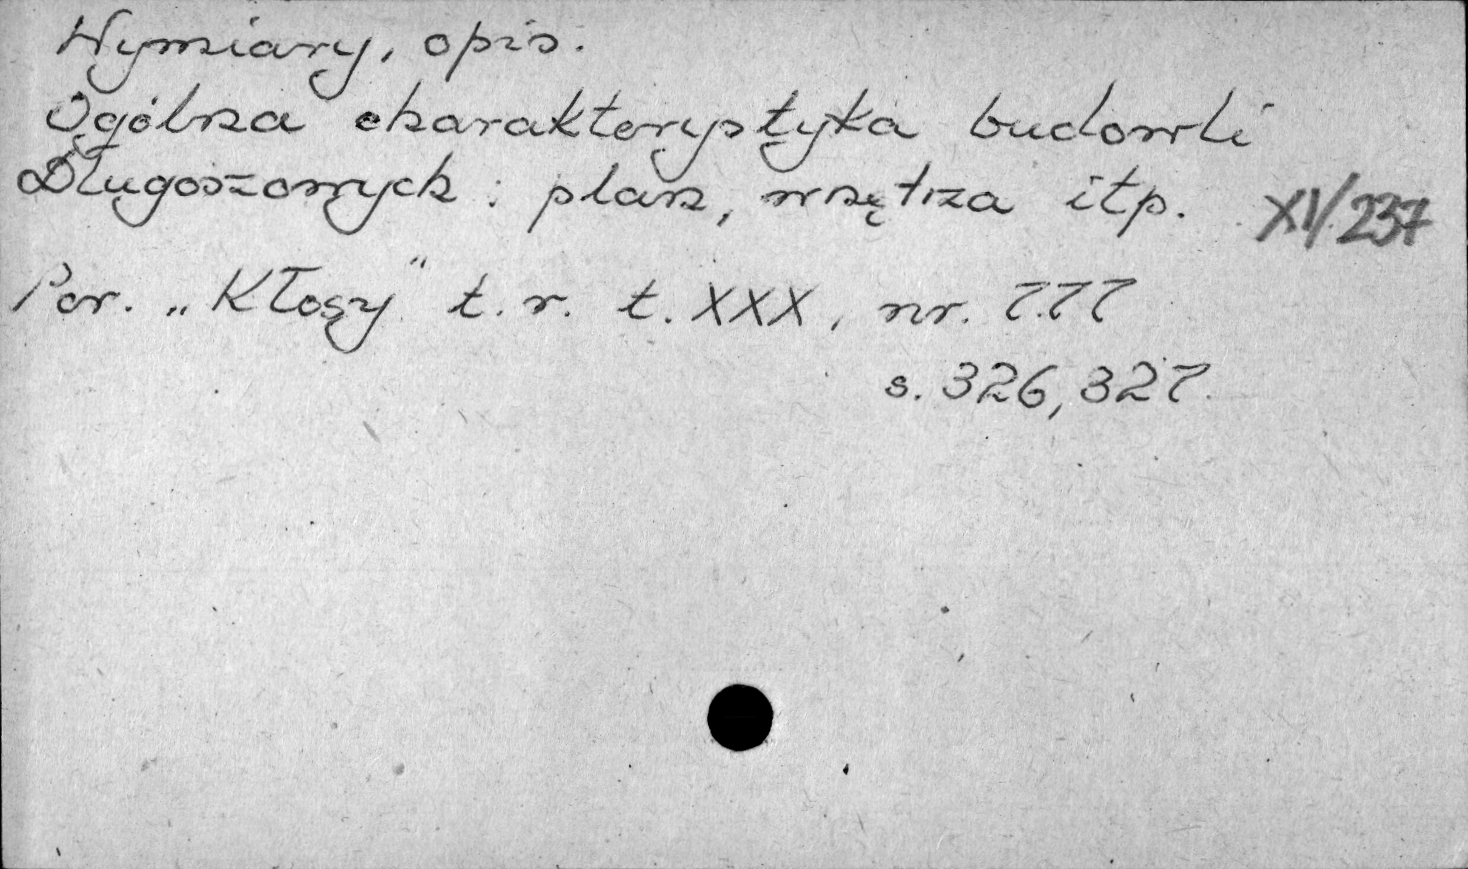 Wymiary, opis.
Ogólna charakterystyka budowli
Długoszowych: plan, wnętrza itp.
XI/237
Por. „Kłosy” t. r. t. XXX, nr. 777
s. 326, 327.